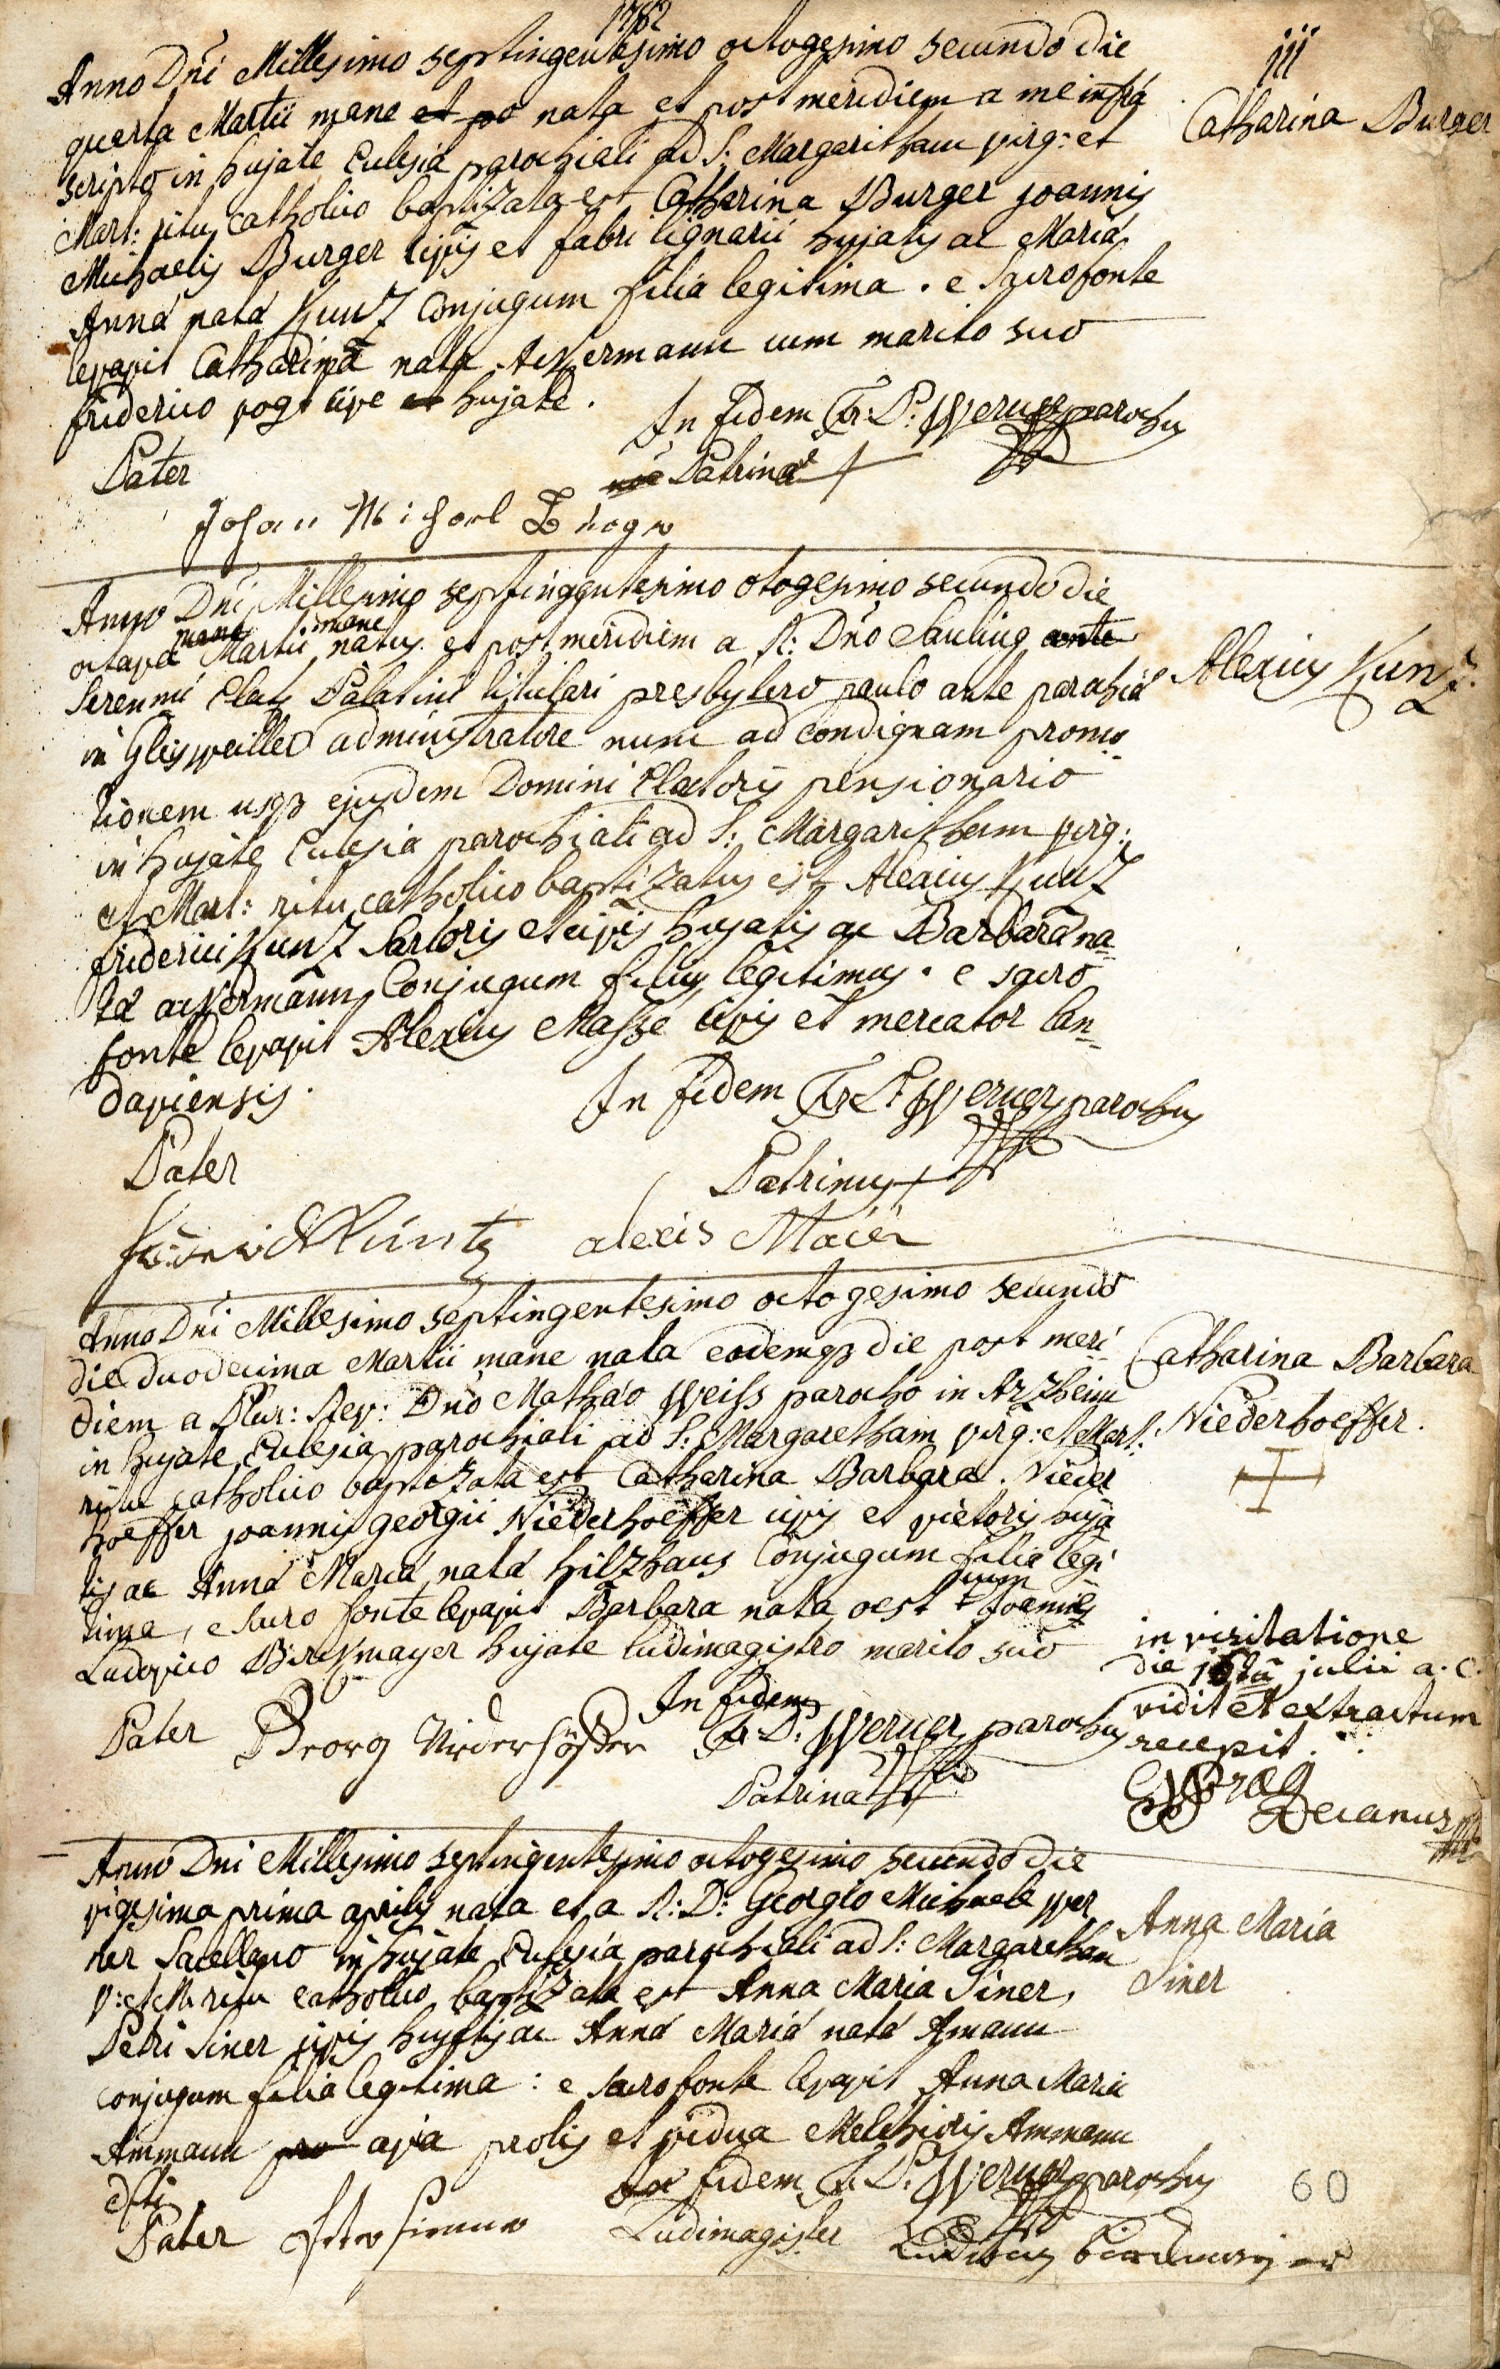 1782
Anno Dni Millesimo septingentesimo octogesimo secundo die
quarta Martii mane et po nata et post meridiem a me infra
scripto in hujate Eclesia parochiali ad S: Margaritham virg: et
Mart: ritu catholico baptizata est Catherina Burger joannis
Michaelis Burger civis et fabri lignarii hujatis ac Maria
Anna nata Kunz Conjugum filia legitima . e Sacro fonte
levavit Catharina nata Ackermann cum marito suo
friderico vogt cive et hujate .
In fidem Fr: P: Werner parochus
Pater
Patrina +
Johan Michael
iii
Catharina Burger
Anno Dni Millesimo septinggentesimo otogesimo secundo die
mane mane
octava Martii natus et post meridiem a R: Dno Sauling ante
Serenmi Elect Palatini titulari presbytero paulo ante parochia
in Gleisweiller administratore nunc ad condignam promo
tionem usq3 ejusdem Domini Electoris pensionario
in hujate Eclesia parochiali ad S: Margaritham virg:
et Mart: ritu catholico baptizatus est Alexius Kunz
friderici Kunz Sartoris et civis hujatis ac Barbara na
ta ackermann Conjugum filius legitimus . e sacro
fonte levavit Alexius Masse civis et mercator lan
daviensis .
In fidem Fr. P: Werner parochus
Pater
Patrinus +
Kuntz alexis
Alexius Kunz.
Anno Dni Millesimo septingentesimo octogesimo secundo
die duodecima Martii mane nata eodemq3 die post meri
diem a Plur: Rev: Dno Mathao Weiss parocho in Arzheim
in hujate Eclesia parochiali ad S: Margaretham virg: et Mart:
ritu catholico baptizata est Catherina Barbara Nieder
hoeffer joannis georgii Niederhoeffer civis et vietoris huja
tis ac Anna Maria nata hilzhaus Conjugum filia legi
tima, e sacro fonte levavit Barbara nata oest cum Joanne
Ludovico Birckmayer hujate ludimagistro marito suo
In fidem
Pater Georg Niederhöffer Fr P: Werner parochus
Patrina
Catharina Barbara
Niederhoeffer.
in visitatione
die 16ta julii a. c.
vidit et extractum
recepit .
Decanus
Anno Dni Millesimo septingentesimo octogesimo secundo die
vigesima prima aprilis nata et a R: D: Georgio Michaele Wer
ner Sacellano in hujate Eclesia parochiali ad S: Margaretham
V: et M: ritu catholico baptizata est Anna Maria Siner
Petri Siner civis hujatis ac Anna Maria nata Amann
conjugum filia legitima : e sacro fonte levavit Anna Maria
Ammann pro avia prolis et vidua Melchioris Ammann
dfti
In fidem Fr. P: Werner parochus
Pater
Ludimagister
Anna Maria
Siner
60